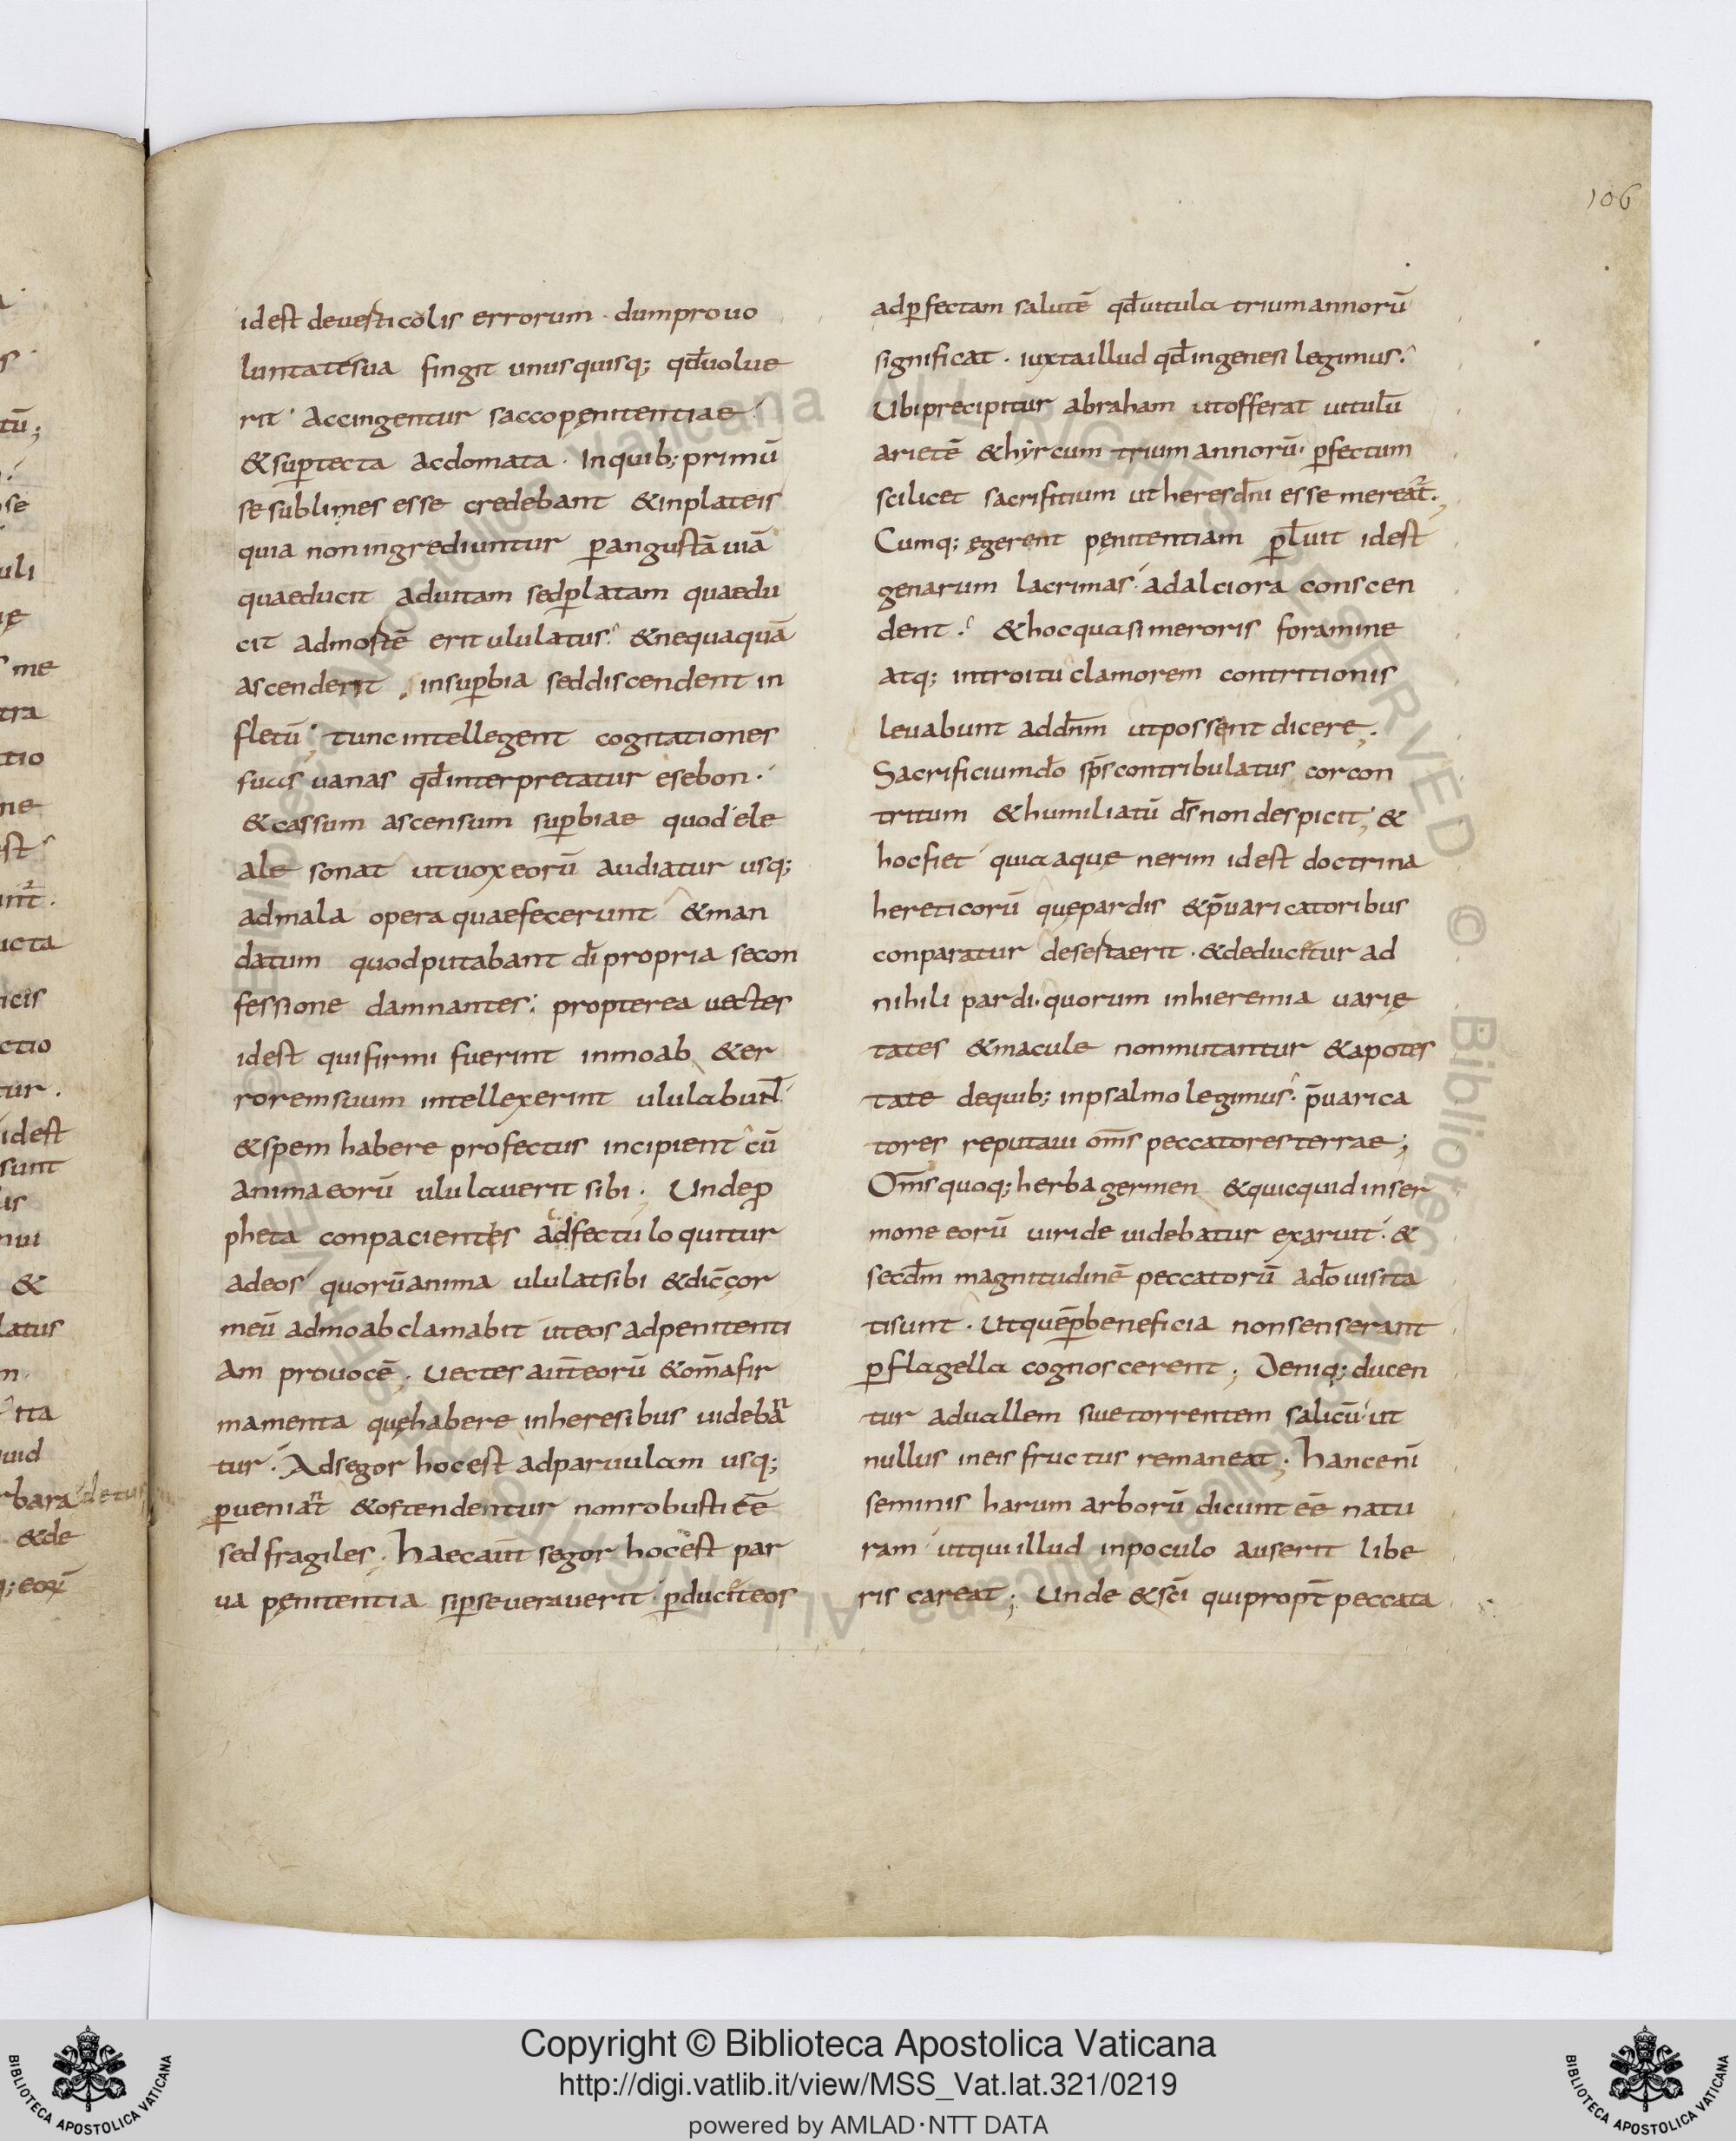 106
idest deuesticolis errorum · dumprouo
luntatesua fingit unusquisq; qđuolue
rit · Accingentur saccopęnitentiae ·
&suꝑtecta acdomata · Inquib; primū
se sublimes esse credebant &inplateis
quia noningrediuntur ꝑangustā uiā
quaeducit aduitam sedꝑlatam quaedu
cit admortē erit ululatus · &nequaquā
ascenderit insuꝑbia seddiscendent in
fletū ; tuncintellegent cogitationes
suas uanas qđinterpretatur esebon ·
&cassum ascensum suꝑbiae quod ele
ale sonat utuoxeorū audiatur usq;
admala opera quaefecerunt &man
datum quodputabant dī propria secon
fessione damnantes ; propterea uectes
idest quifirmi fuerint inmoab &er
roremsuum intellexerint ululabunt
&spem habere profectus incipient cū
animaeorū ululauerit sibi ; Undeꝑ
pheta conpacientes adfectu loquitur
adeos quorūanima ululatsibi &dic̄ cor
meū admoab clamabit uteos adpenitenti
am prouocē ; Uectes aut̄eorū &om̄afir
mamenta quęhabere inheresibus uidebā
tur · Adsegor hocest adparuulam usq;
ꝑueniat &ostendentur nonrobusti ēē
sedfragiles ; Haecaut̄ segor hocest par
ua pęnitentia siꝑseuerauerit ꝑducit eos
adꝑfectam salutē qđuitula triumannorū
significat · iuxtaillud qđingenesi legimus ·
Ubiprecipitur abraham utofferat uitulū
arietē &hyrcum triumannorū · ꝑfectum
scilicet sacrifitium utheresdn̄i esse mereat̄ ;
Cumq; ęgerent pęnitentiam ꝑluit idest
genarum lacrimas · adalciora conscen
dent · &hocquasi meroris foramine
atq; introitu clamorem contritionis
leuabunt addn̄m utpossent dicere ;
Sacrificiumdō sp̄s contribulatus corcon
tritum &humiliatū d̄s nondespicit ; &
hocfiet quiaaquę nerim idest doctrina
hereticorū quępardis &p̄uaricatoribus
conparatur desertaerit · &deducitur ad
nihili pardi · quorum inhieremia uarię
tates &macule nonmutantur &apotes
tate dequib; inpsalmo legimus · p̄uarica
tores reputaui om̄s peccatoresterrae ;
Om̄s quoq; herba germen &quicquid inser
mone eorū uiride uidebatur exaruit · &
secd̄m magnitudinē peccatorū adō uisita
tisunt · Utquēꝑbeneficia nonsenserant
ꝑflagella cognoscerent ; Deniq; ducen
tur aduallem siuetorrentem salicū · ut
nullus ineis fructus remaneat ; Hancenī
seminis harum arborū dicunt ēē natu
ram utquiillud inpoculo auserit libe
ris careat ; Unde &sc̄i quipropt̄ peccata
Copyright © Biblioteca Apostolica Vaticana
http://digi.vatlib.it/view/MSS_Vat.lat.321/0219
powered by AMLAD·NTT DATA